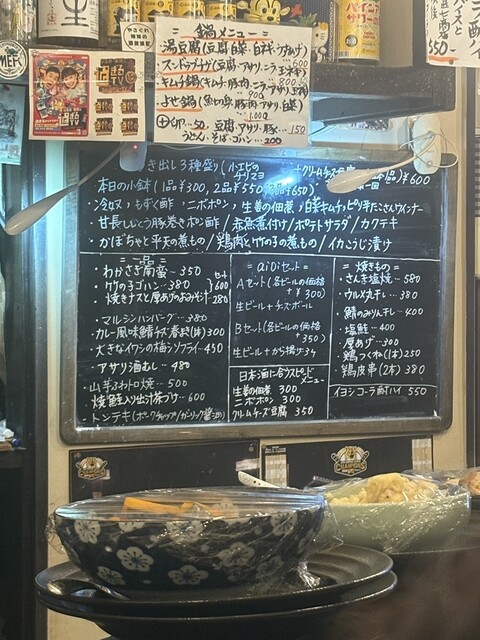 鍋メニュー
湯豆腐(豆腐・白菜・白ネギ・つけダレ)
スンドゥブチゲ(豆腐・アサリ・ニラ・玉ネギ) 600
キムチ鍋(キムチ・豚肉・ニラ・玉ネギ) 800
900
よせ鍋(魚切身・豚肉・アサリ・白菜)
1.000
卵…50, 豆腐・アサリ・豚…150
うどん・そば・ゴハン…200
き出し3種盛り
クリームチーズ豆腐
¥600
本日の小鉢(1品¥300, 2品¥550
¥650)
・冷奴・もずく酢・ニボポン・生姜の佃煮・白菜キムチ・ピリ辛たこさんウインナー
・甘長しとう豚巻きポン酢/赤魚煮付け/ポテトサラダ/カクテキ
・かぼちゃと平天の煮もの/鶏肉と竹の子の煮もの/イカこうじ漬け
一品
・わかさぎ南蛮〜350
・竹の子ゴハン…380
・焼きナスと厚あげのおろしポン酢 280
セット
600
・マルシンハンバーグ…380
・カレー風味鯖チーズ春巻(1本)300
・大きなイワシの梅シソフライ…450
・アサリ酒むし…480
・山芋ふわトロ焼…500
・焼鮭入り出汁茶づけ…600
・トンテキ(ポークチャップ/ガーリック醤油)
aiDiセット
Aセット(各ビールの価格
+¥300)
生ビール+チーズボール
Bセット(各ビールの価格
+350)
生ビール+から揚げ3ヶ
日本酒に合うスピード
メニュー
生姜の佃煮 300
ニボポン 300
クリームチーズ豆腐 350
焼きもの
・さんま塩焼…580
・ウルメ丸干し…380
・鯖のみりん干し…400
・塩鮭…400
・厚あげ…300
・鶏つくね(1本)250
・鶏皮串(2本)380
イヨシコーラ酎ハイ 550
CHAMPIONS